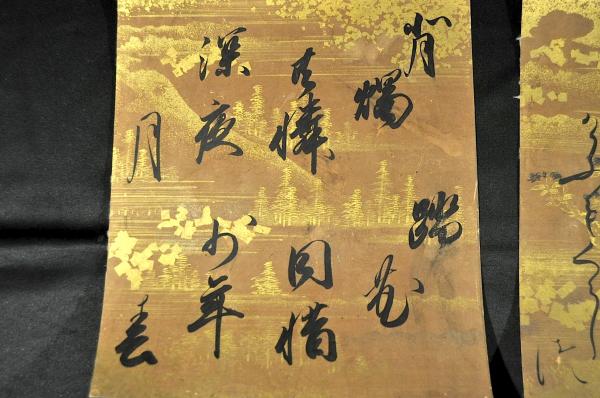 背
燭
共憐
深夜
月
踏
花
同惜
少年
春